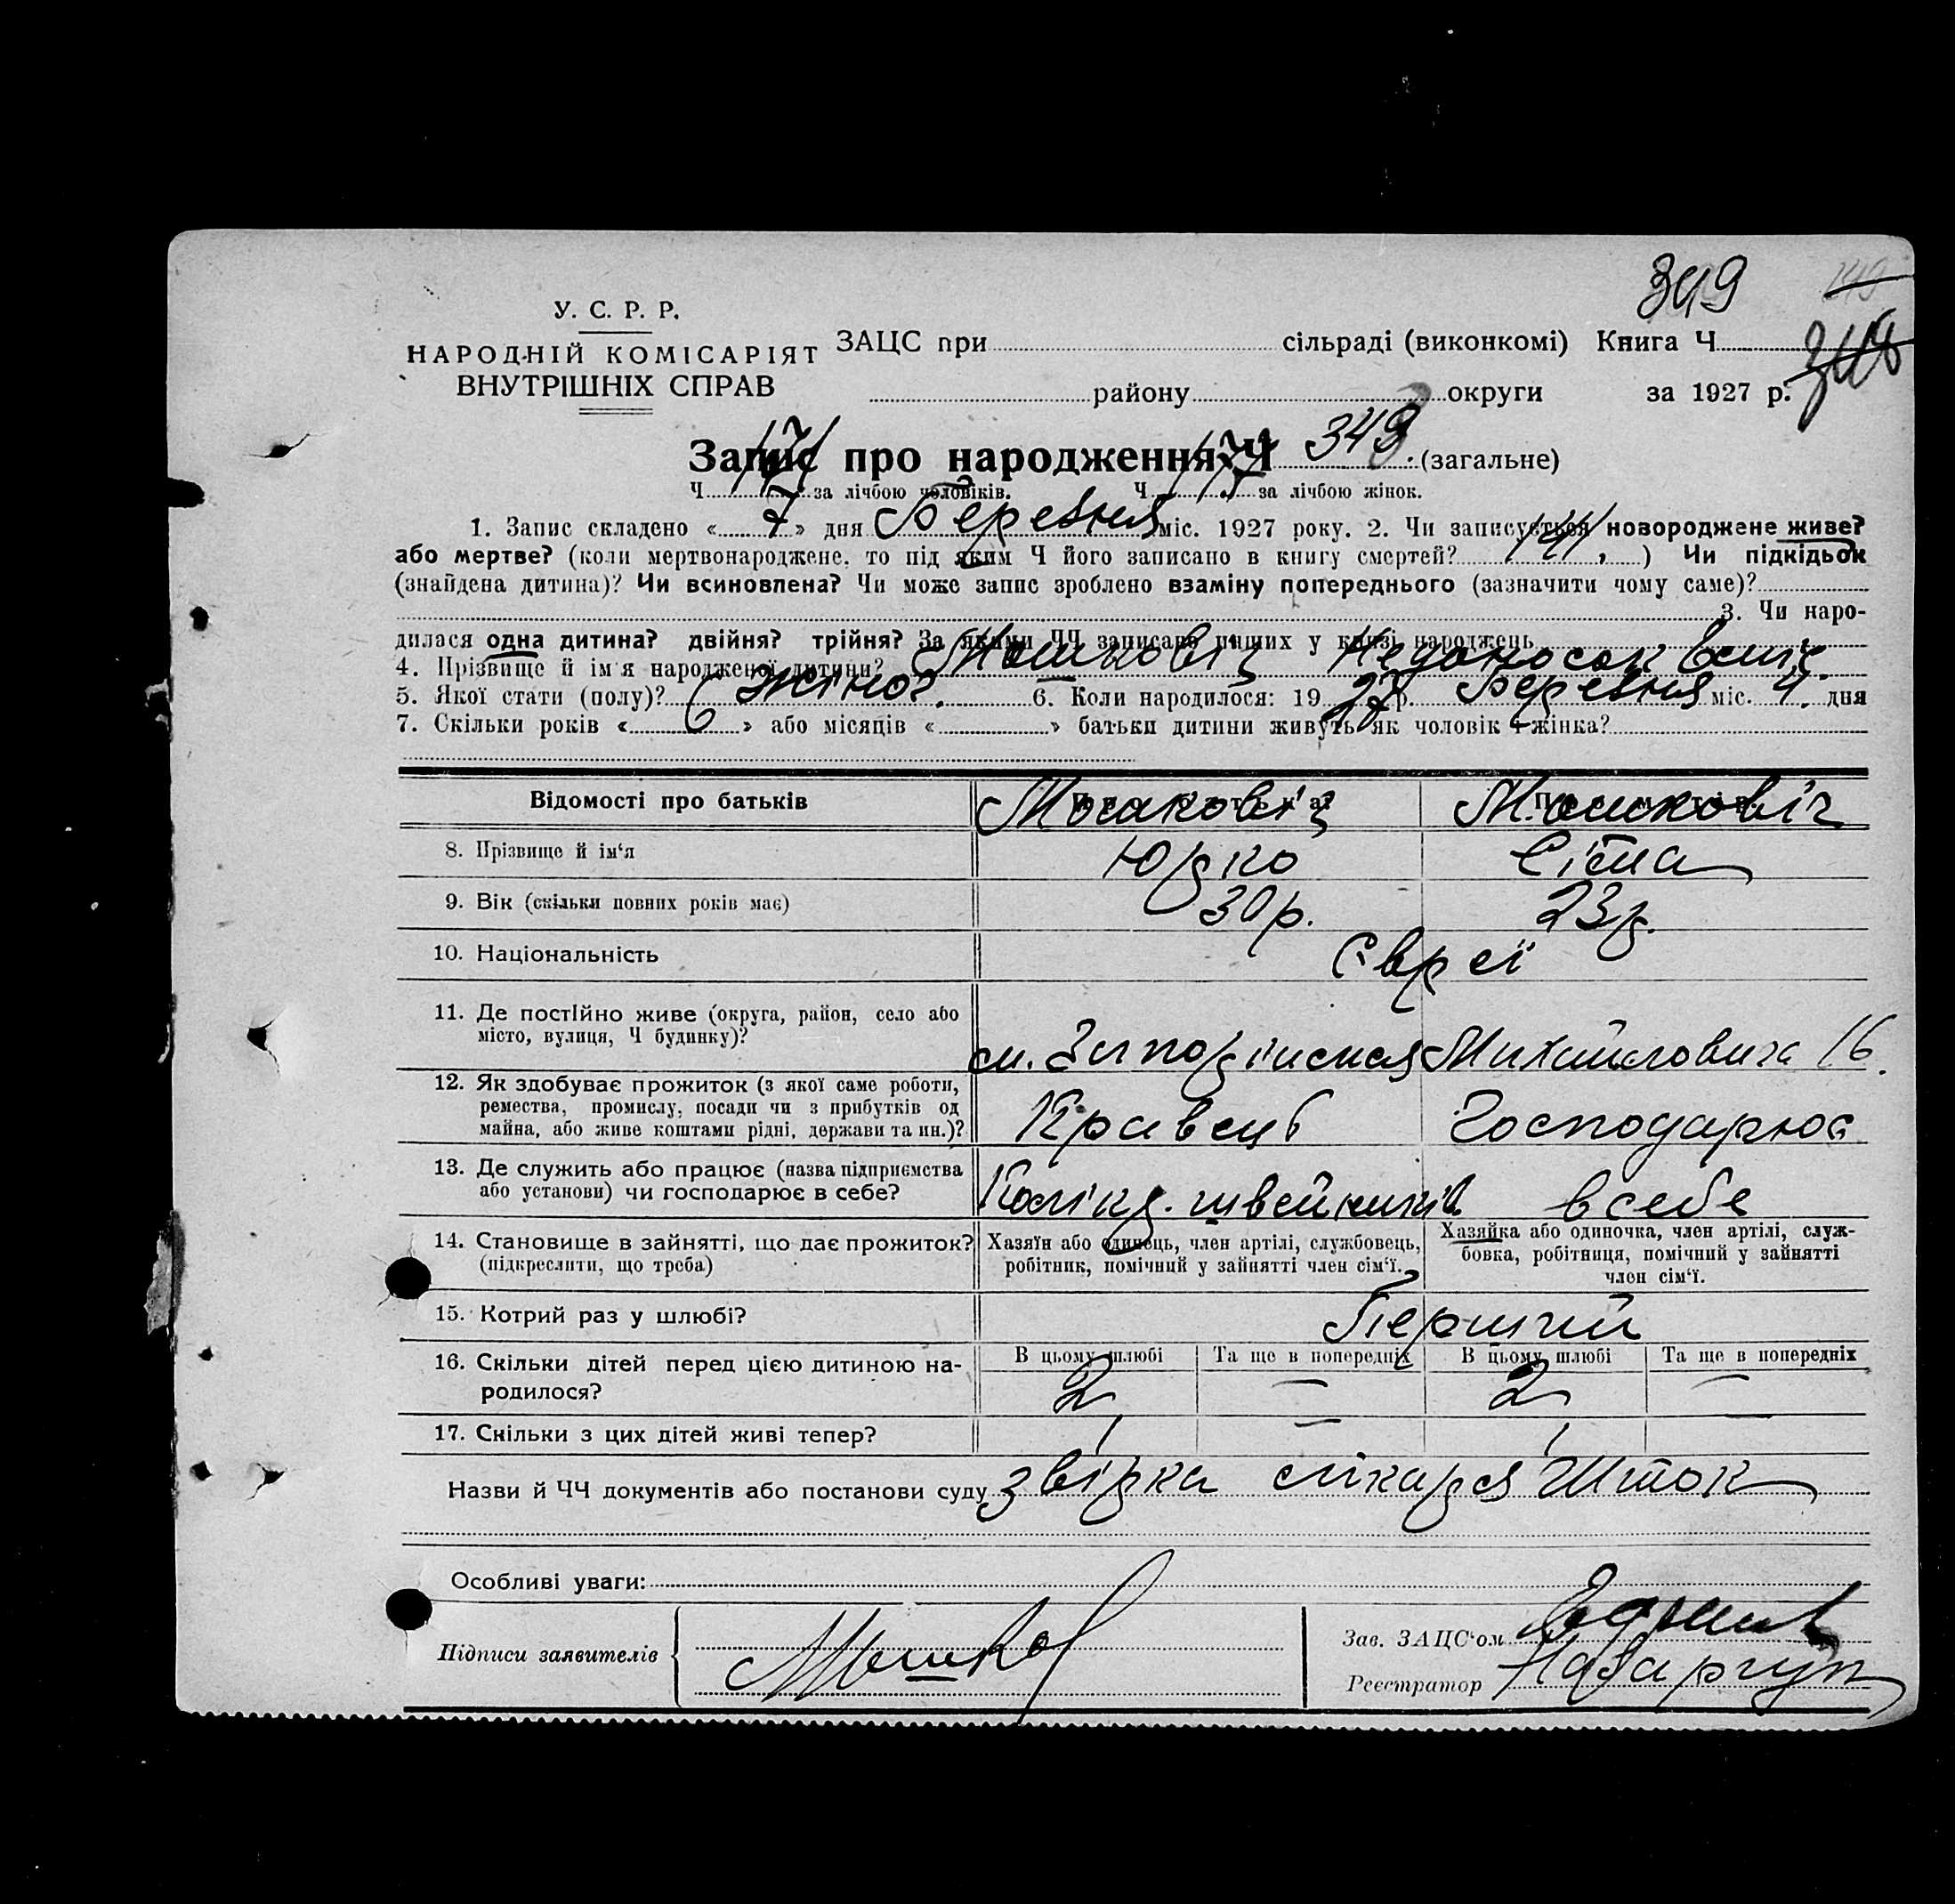 349
У. С. Р. Р.
НАРОДНІЙ КОМІСАРІЯТ
ВНУТРІШНІХ СПРАВ
ЗАЦС при сільраді (виконкомі) Книга Ч
району округи за 1927 р.
Запис про народження Ч 349 (загальне)
Ч за лічбою чоловіків. Ч за лічбою жінок.
1. Запис складено « 7 » дня Березня міс. 1927 року. 2. Чи записується новороджене живе?
або мертве? (коли мертвонароджене, то під яким Ч його записано в книгу смертей? 141, ) Чи підкідьок
(знайдена дитина)? Чи всиновлена? Чи може запис зроблено взаміну попереднього (зазначити чому саме)?
3. Чи наро-
дилася одна дитина? двійня? трійня? За якими ЧЧ записано инших у книзі народжень
4. Прізвище й ім'я народженої дитини? Мошковіч Недоносок
5. Якої стати (полу)? Жіноч. 6. Коли народилося: 19 27 р. Березня міс. 4. дня
7. Скільки років « 6 » або місяців « » батьки дитини живуть як чоловік і жінка?
Відомості про батьків
8. Прізвище й ім'я Мошковіч Юдко Мошковіч Сіма
9. Вік (скільки повних років має) 30 р. 23 р.
10. Національність Євреї
11. Де постійно живе (округа, район, село або
місто, вулиця, Ч будинку)? Михайловича 16.
12. Як здобуває прожиток (з якої саме роботи,
ремества, промислу, посади чи з прибутків од
майна, або живе коштами рідні, держави та ин.)? Кравець Господарює
13. Де служить або працює (назва підприємства
або установи) чи господарює в себе? швейників в себе
14. Становище в зайнятті, що дає прожиток?
(підкреслити, що треба)
Хазяїн або одинець, член артілі, службовець,
робітник, помічний у зайнятті член сім'ї.
Хазяйка або одиночка, член артілі, служ-
бовка, робітниця, помічний у зайнятті
член сім'ї.
15. Котрий раз у шлюбі? Перший
16. Скільки дітей перед цією дитиною на-
родилося?
В цьому шлюбі Та ще в попередніх В цьому шлюбі Та ще в попередніх
2 — 2 —
17. Скільки з цих дітей живі тепер? 1 — 1 —
Назви й ЧЧ документів або постанови суду звірка лікаря Шток
Особливі уваги:
Підписи заявителів Мошков
Зав. ЗАЦС'ом
Реєстратор